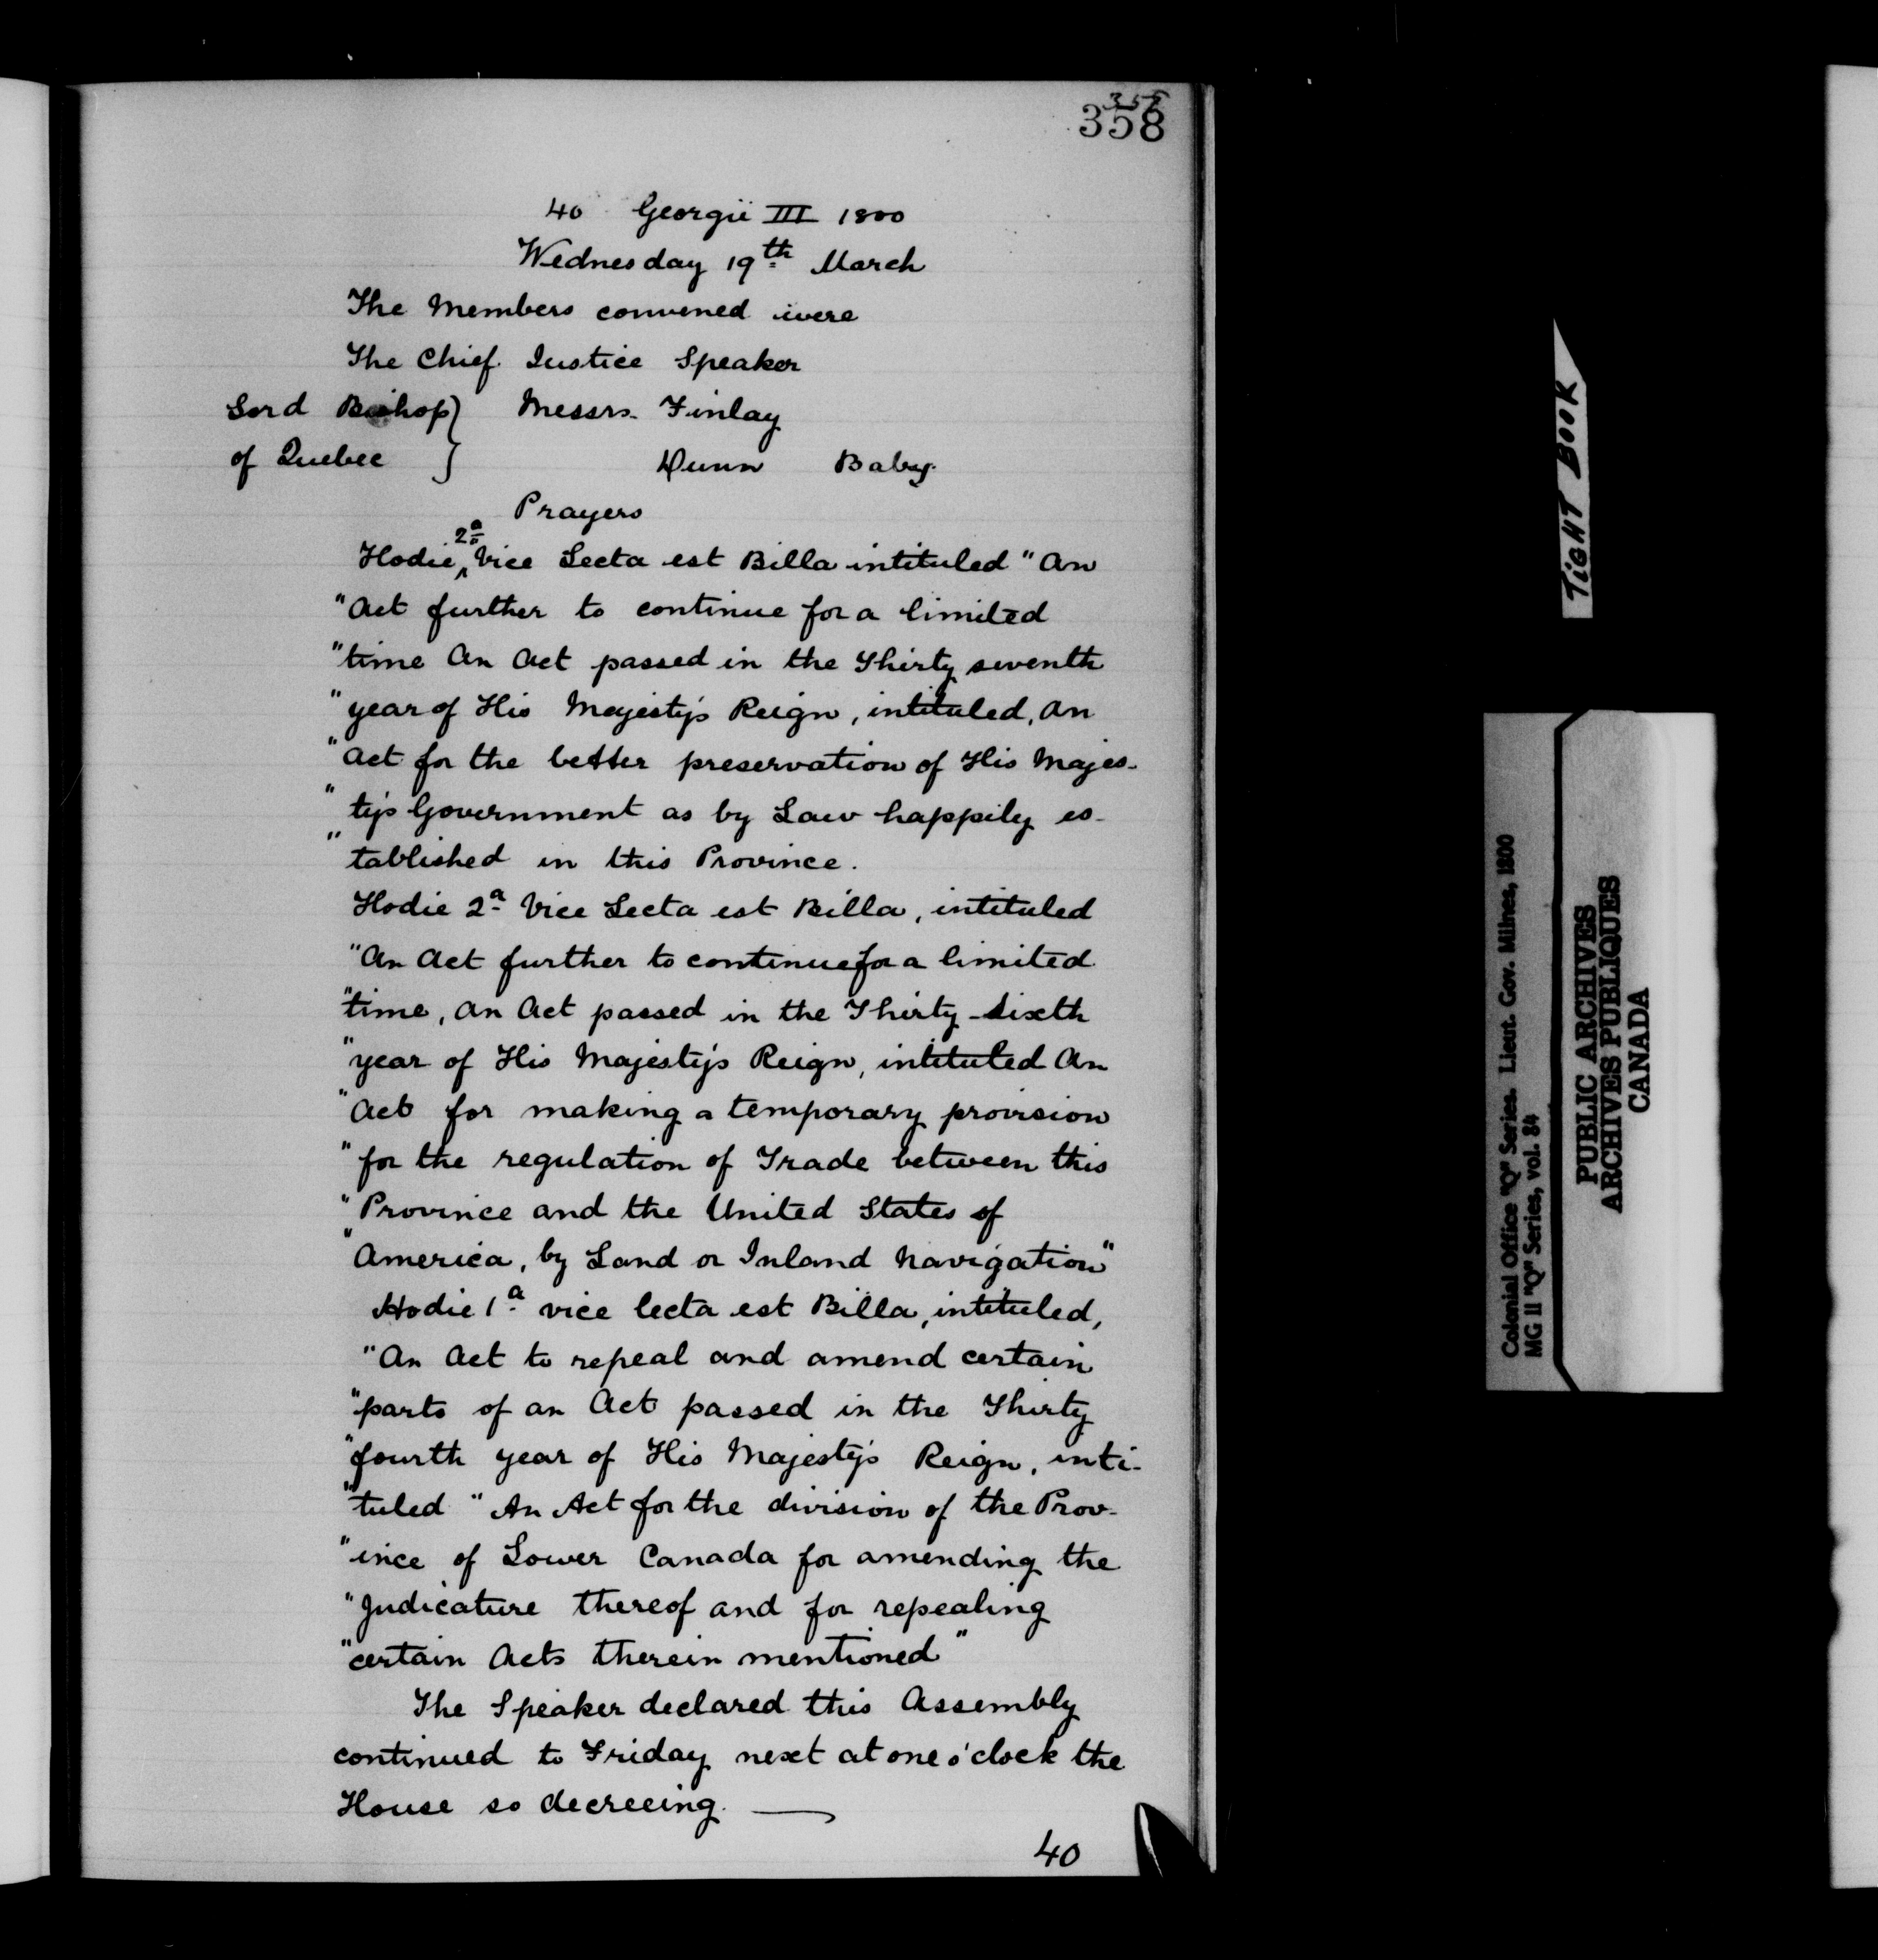 355
358
40 Georgii III 1800
Wednesday 19th March
The Members convened were
The Chief Justice Speaker
Lord Bishop } Messrs. Finlay
of Quebec } Dunn Baby.
Prayers
Hodie 2a Vice Lecta est Billa intituled "An
"Act further to continue for a limited
"time An Act passed in the Thirty seventh
"year of His Majesty's Reign, intituled, An
"Act for the better preservation of His Majes-
"ty's Government as by Law happily es-
"tablished in this Province.
Hodie 2a Vice Lecta est Billa, intituled
"An Act further to continue for a limited
"time, An Act passed in the Thirty-Sixth
"year of His Majesty's Reign, intituled An
"Act for making a temporary provision
"for the regulation of Trade between this
"Province and the United States of
"America, by Land or Inland Navigation"
Hodie 1a vice lecta est Billa, intituled,
"An Act to repeal and amend certain
"parts of an Act passed in the Thirty
"fourth year of His Majesty's Reign, inti-
"tuled "An Act for the division of the Prov-
"ince of Lower Canada for amending the
"Judicature thereof and for repealing
"certain Acts therein mentioned"
The Speaker declared this Assembly
continued to Friday next at one o'clock the
House so decreeing.
40
TIGHT BOOK
Colonial Office "Q" Series. Lieut. Gov. Milnes, 1800
MG 11 "Q" Series, vol. 84
PUBLIC ARCHIVES
ARCHIVES PUBLIQUES
CANADA